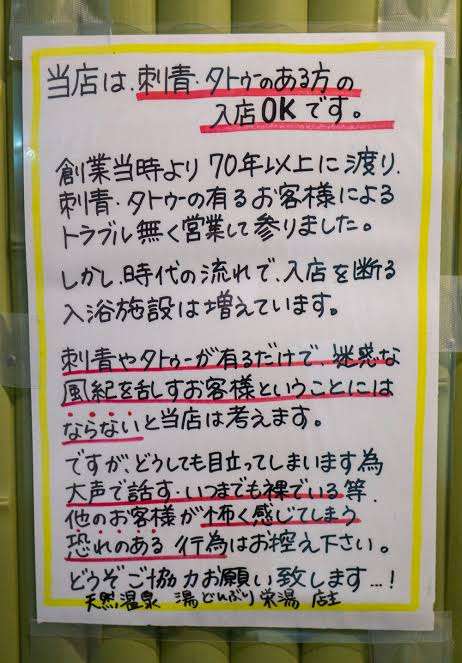 当店は、刺青・タトゥーのある方の
入店OKです。
創業当時より70年以上に渡り、
刺青・タトゥーの有るお客様による
トラブル無く営業して参りました。
しかし、時代の流れで、入店を断る
入浴施設は増えています。
刺青やタトゥーが有るだけで、迷惑な
風紀を乱すお客様ということには
ならないと当店は考えます。
ですが、どうしても目立ってしまいます為
大声で話す・いつまでも裸でいる等、
他のお客様が怖く感じてしまう
恐れのある行為はお控え下さい。
どうぞご協力お願い致します…!
天然温泉 湯どんぶり栄湯 店主